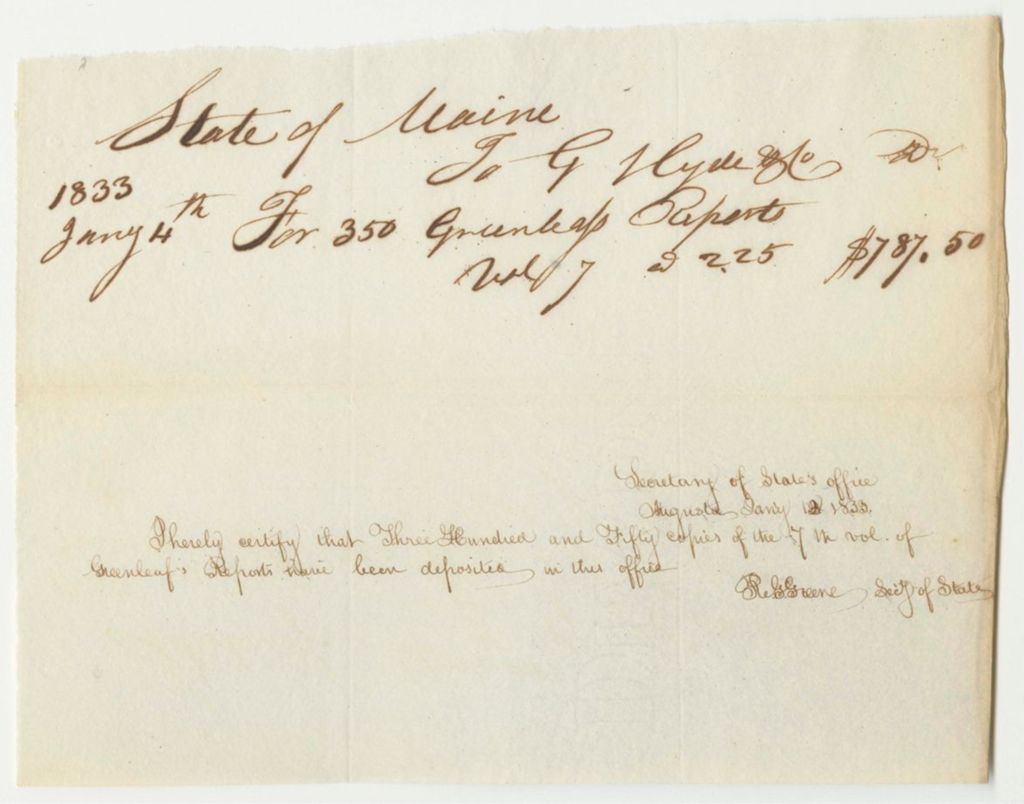 State of Maine
To G Hyde & Co Dr.
1833
Jany 4th For 350 Greenleafs Reports
Vol 7 a 2.25 $787.50
Secretary of State's office
Augusta Jany 12 1833.
I hereby certify that Three Hundred and Fifty copies of the 7th vol. of
Greenleaf's Reports have been deposited in this office
R. G. Greene Secy of State